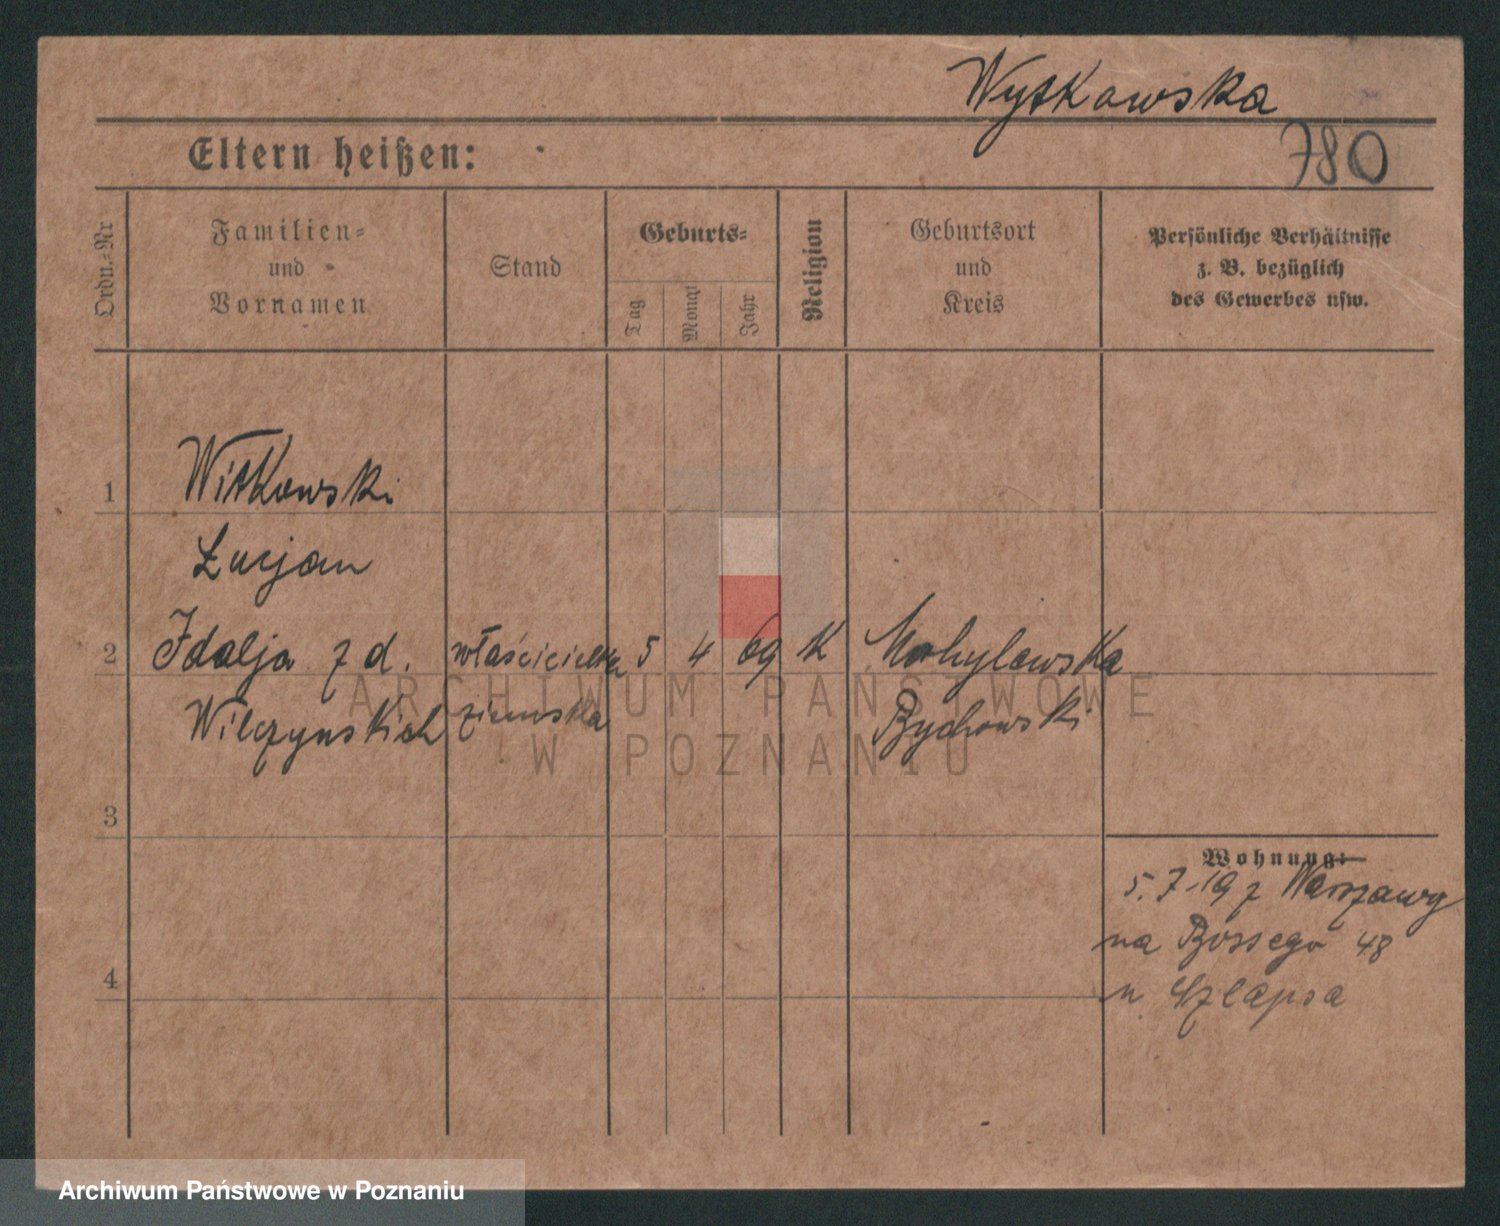 Wytkowska
Eltern heißen:
780
Ordn.-Nr
Familien-
und
Vornamen
Stand
Geburts-
Tag
Monat
Jahr
Religion
Geburtsort
und
Kreis
Persönliche Verhältnisse
z. B. bezüglich
des Gewerbes usw.
1
Witkowski
Lucjan
2
Idalja z d. właścicielka 5 4 69 K Mohylowska
Wilczynskich ziemska Bychowski
3
Wohnung:
5. 7-19 z Warszawy
na Bossego 48
4
u. Szlapsa
ARCHIWUM PAŃSTWOWE
W POZNANIU
Archiwum Państwowe w Poznaniu